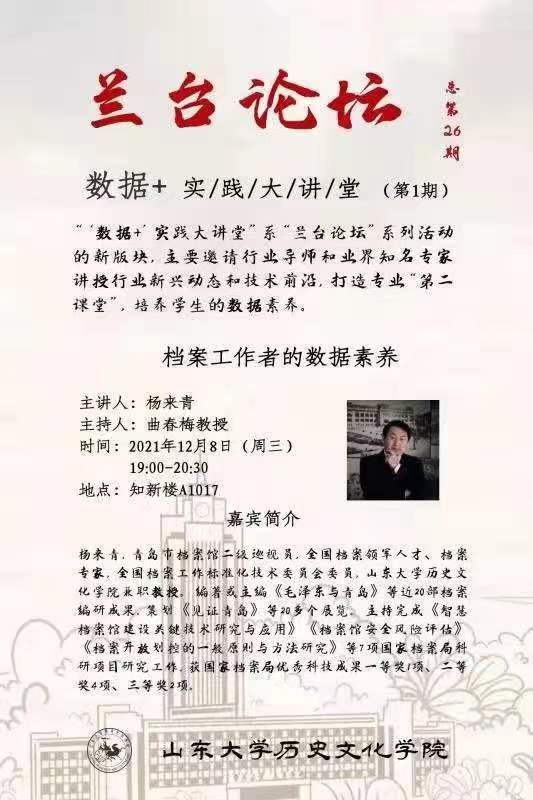 兰台论坛
总第26期
数据+ 实/践/大/讲/堂 （第1期）
“‘数据+’实践大讲堂”系“兰台论坛”系列活动
的新版块，主要邀请行业导师和业界知名专家
讲授行业新兴动态和技术前沿，打造专业“第二
课堂”，培养学生的数据素养。
档案工作者的数据素养
主讲人：杨来青
主持人：曲春梅教授
时间：2021年12月8日（周三）
19:00-20:30
地点：知新楼A1017
嘉宾简介
杨来青，青岛市档案馆二级巡视员，全国档案领军人才、档案
专家，全国档案工作标准化技术委员会委员，山东大学历史文
化学院兼职教授。编著或主编《毛泽东与青岛》等近20部档案
编研成果，策划《见证青岛》等20多个展览。主持完成《智慧
档案馆建设关键技术研究与应用》《档案馆安全风险评估》
《档案开放划控的一般原则与方法研究》等7项国家档案局科
研项目研究工作，获国家档案局优秀科技成果一等奖1项、二等
奖4项、三等奖2项。
山东大学历史文化学院